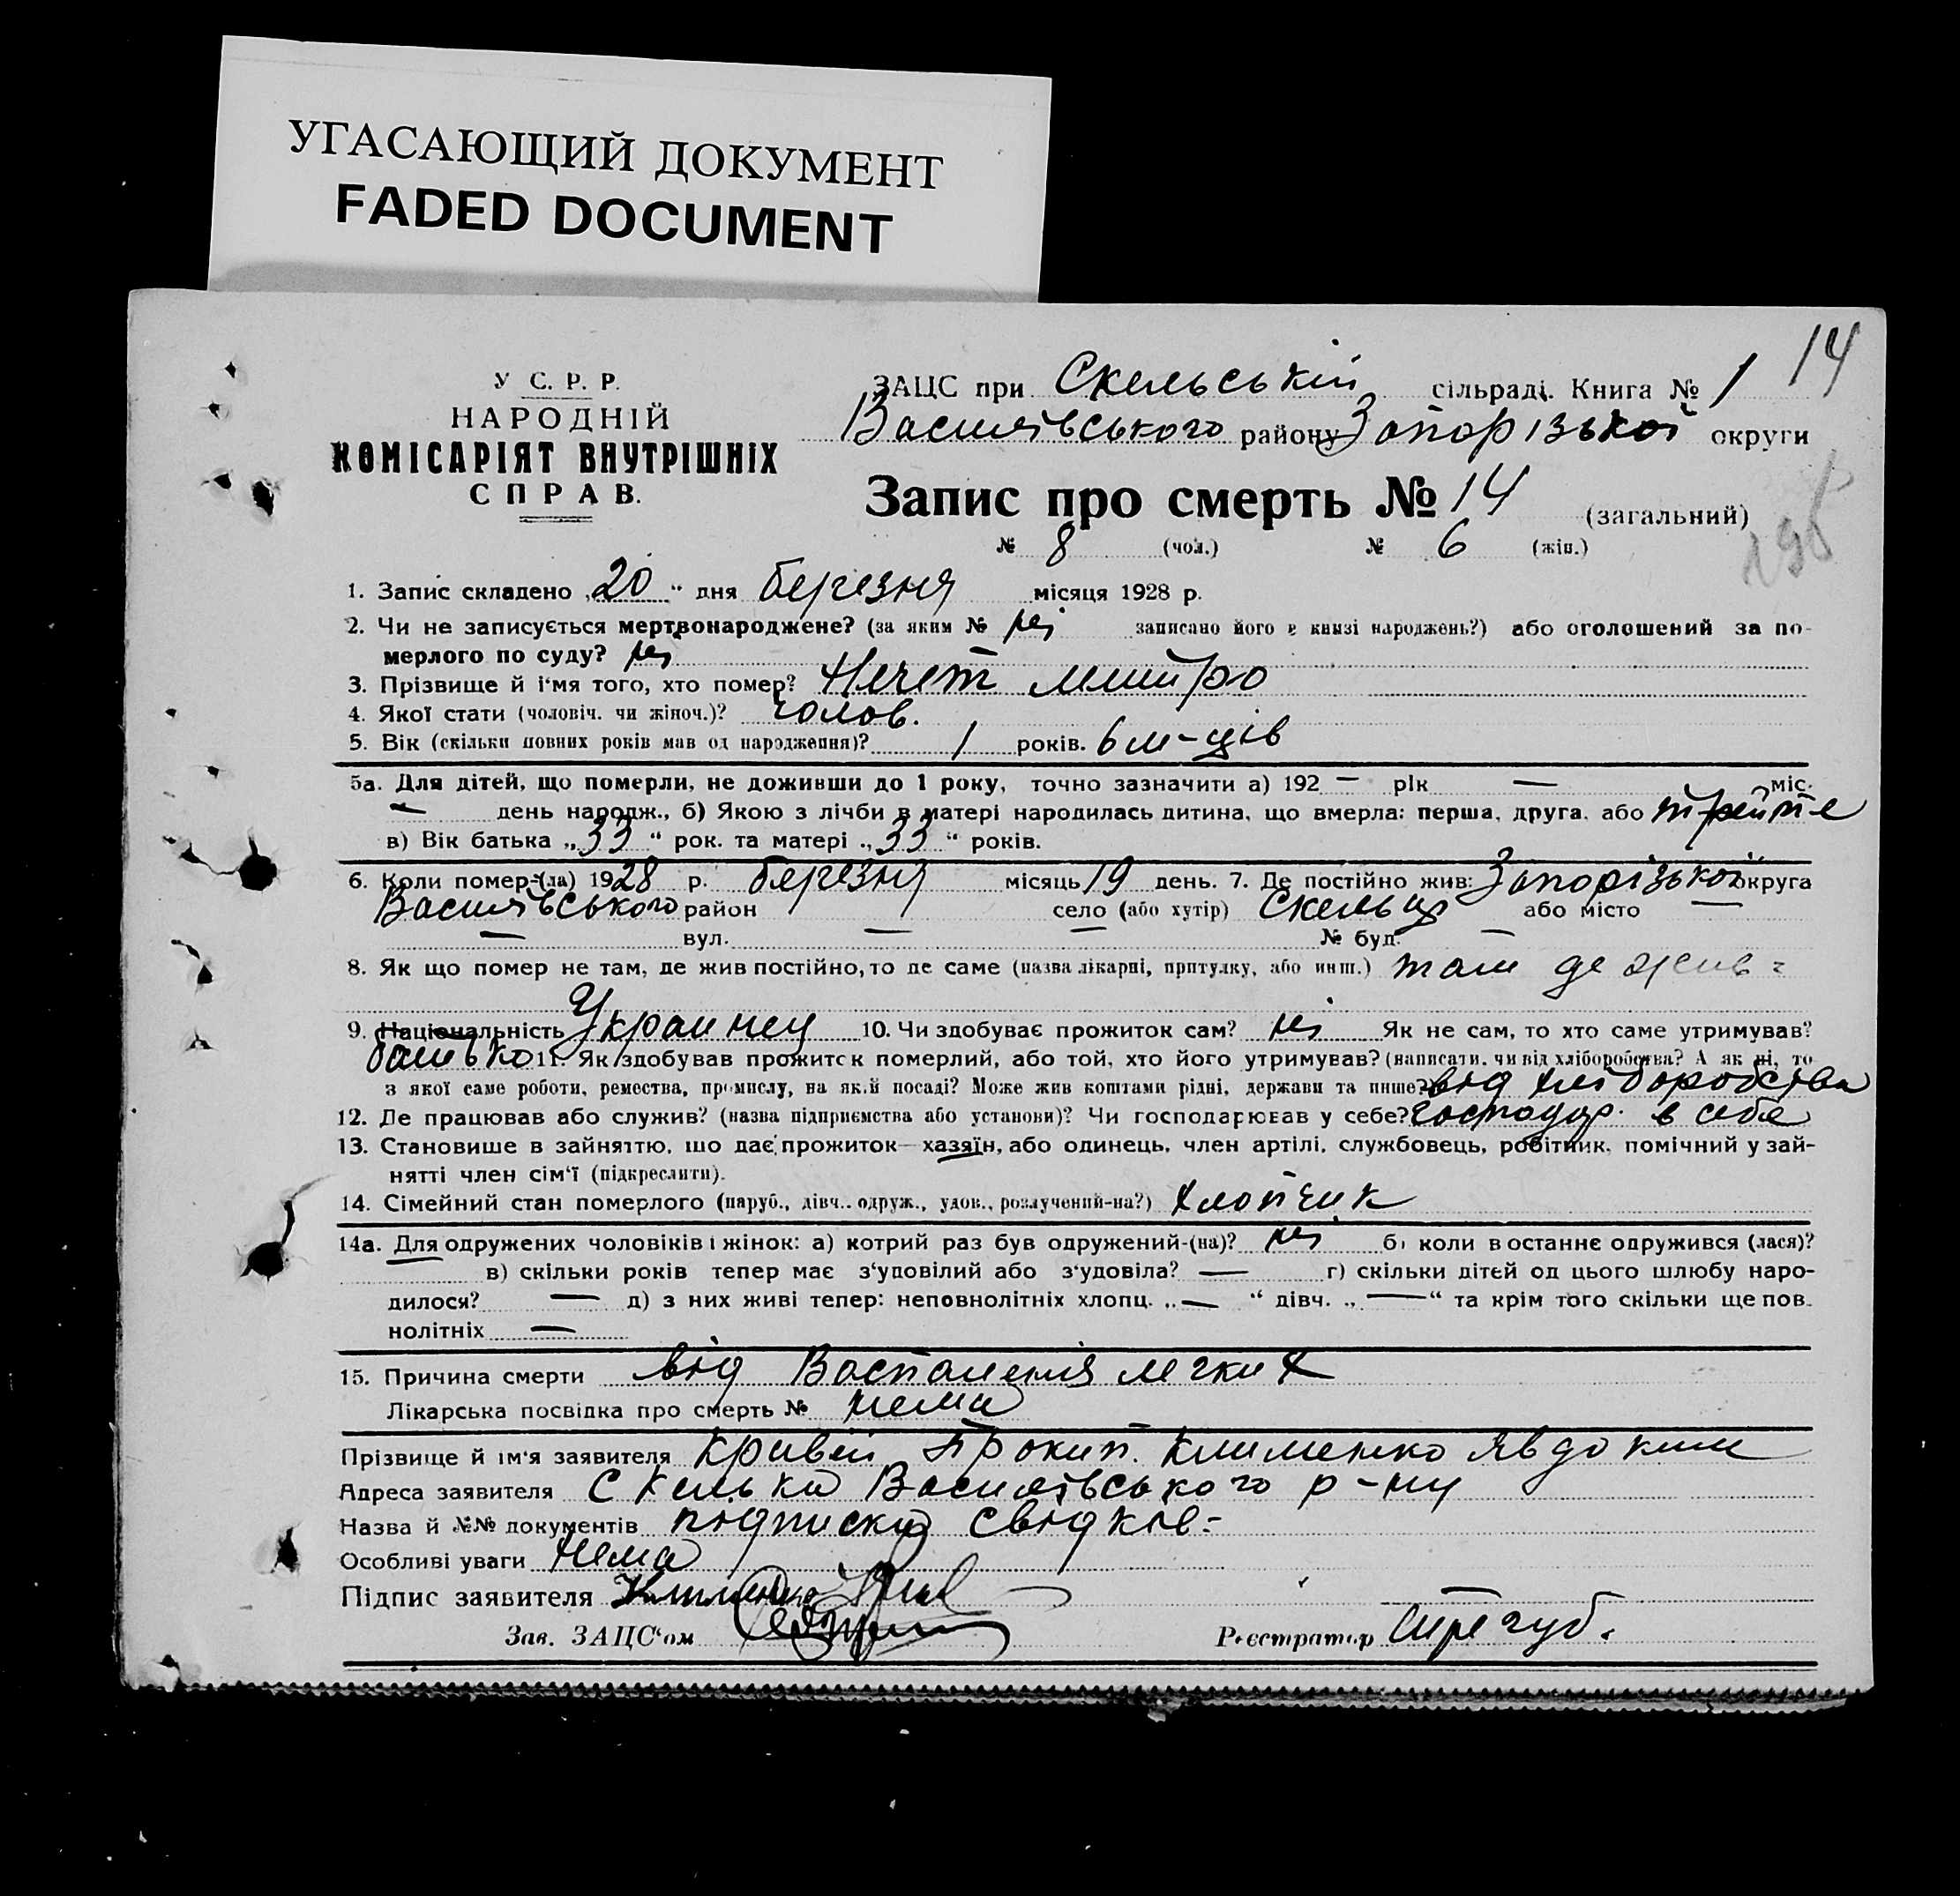 УГАСАЮЩИЙ ДОКУМЕНТ
FADED DOCUMENT
14
У С. Р. Р.
НАРОДНІЙ
КОМІСАРІЯТ ВНУТРІШНІХ
СПРАВ.
ЗАЦС при Скельській сільраді. Книга № 1
Василівського району Запорізької округи
Запис про смерть № 14 (загальний)
№ 8 (чол.) № 6 (жін.)
1. Запис складено „20“ дня березня місяця 1928 р.
2. Чи не записується мертвонароджене? (за яким № ні записано його в книзі народжень?) або оголошений за по-
мерлого по суду? ні
3. Прізвище й і'мя того, хто помер? Нечет Митро
4. Якої стати (чоловіч. чи жіноч.)? чолов.
5. Вік (скільки повних років мав од народження)? 1 років. 6 м-ців
5а. Для дітей, що померли, не доживши до 1 року, точно зазначити а) 192 — рік — міс.
— день народж., б) Якою з лічби в матері народилась дитина, що вмерла: перша, друга, або
в) Вік батька „33“ рок. та матері „33“ років.
6. Коли помер-(ла) 1928 р. березня місяць 19 день. 7. Де постійно жив: Запорізької округа
Василівського район село (або хутір) або місто —
— вул. — — № буд. —
8. Як що помер не там, де жив постійно, то де саме (назва лікарні, притулку, або инш.) там де жив
9. Національність Украинец 10. Чи здобуває прожиток сам? ні Як не сам, то хто саме утримував?
батько 11. Як здобував прожиток померлий, або той, хто його утримував? (написати, чи від хліборобства? А як ні, то
з якої саме роботи, ремества, промислу, на якій посаді? Може жив коштами рідні, держави та инше?) від хліборобства
12. Де працював або служив? (назва підприємства або установи)? Чи господарював у себе? господар. в себе
13. Становище в зайняттю, що дає прожиток—хазяїн, або одинець, член артілі, службовець, робітник, помічний у зай-
нятті член сім'ї (підкреслити).
14. Сімейний стан померлого (паруб., дівч., одруж., удов., розлучений-на?) хлопчик
14а. Для одружених чоловіків і жінок: а) котрий раз був одружений-(на)? ні б) коли в останнє одружився (лася)?
в) скільки років тепер має з'удовілий або з'удовіла? — г) скільки дітей од цього шлюбу наро-
дилося? — д) з них живі тепер: неповнолітніх хлопц. „—“ дівч. „—“ та крім того скільки ще пов-
нолітніх —
15. Причина смерти від Воспаленія легких
Лікарська посвідка про смерть № нема
Прізвище й ім'я заявителя Кривей Прокип. Клименко Явдоким
Адреса заявителя Скелька Василівського р-ну
Назва й №№ документів підписка свідків
Особливі уваги Нема
Підпис заявителя Клименко
Зав. ЗАЦС'ом
Реєстратор